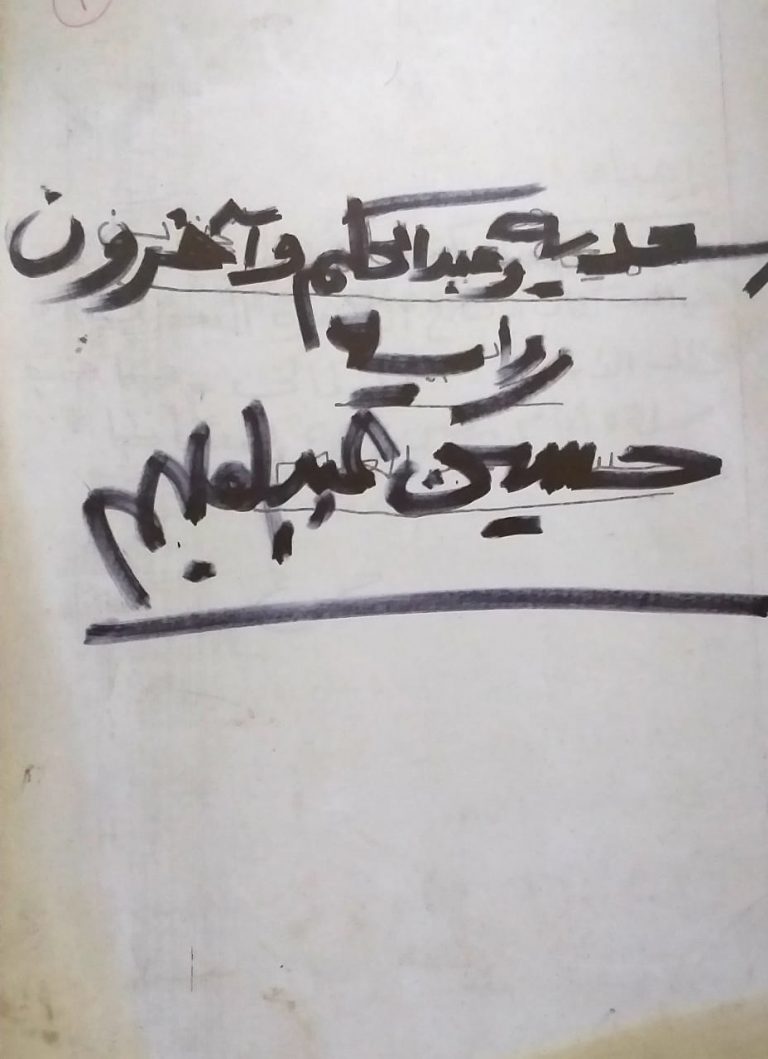 سعدية وعبدالحكم وآخرون
رواية
حسين عبدالعليم